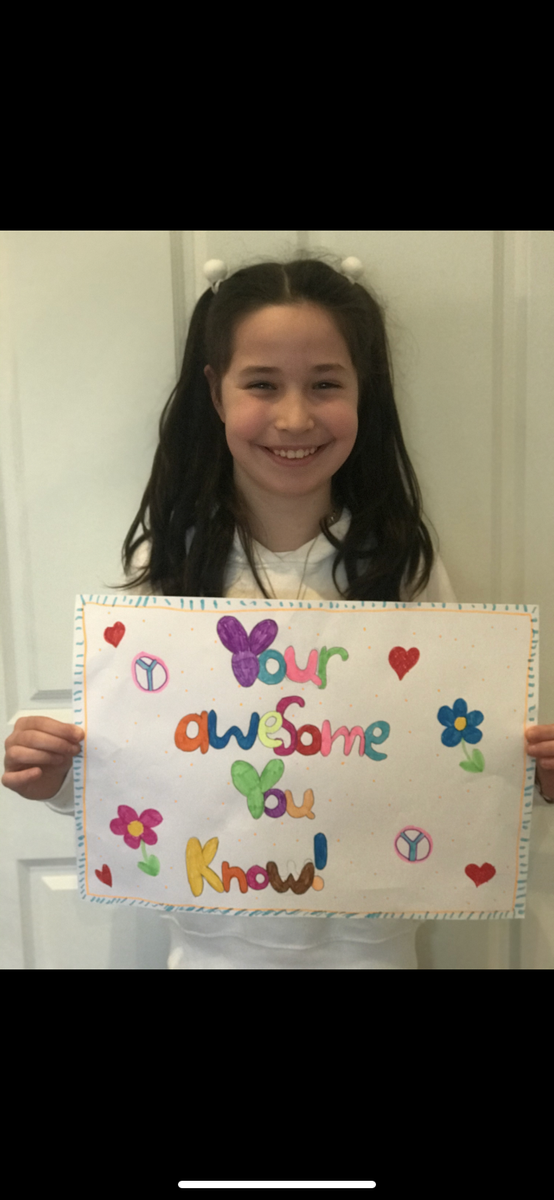 Your
aweSome
You
Know!